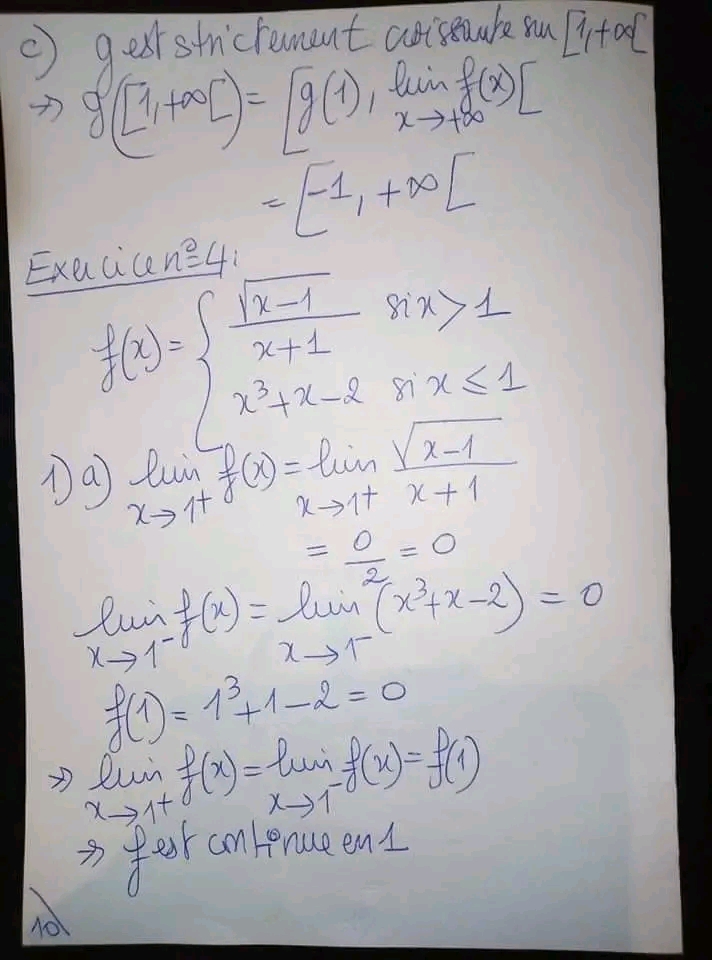 c) g est strictement croissante sur [1,+∞[
→ g([1,+∞[) = [g(1), lim f(x)[
x→+∞
= [-1, +∞[
Exercice n°4:
f(x) = { √(x-1) / (x+1) si x > 1
x³+x-2 si x ≤ 1
1) a) lim f(x) = lim √(x-1) / (x+1)
x→1⁺ x→1⁺
= 0/2 = 0
lim f(x) = lim (x³+x-2) = 0
x→1⁻ x→1⁻
f(1) = 1³+1-2 = 0
⇒ lim f(x) = lim f(x) = f(1)
x→1⁺ x→1⁻
⇒ f est continue en 1
10)